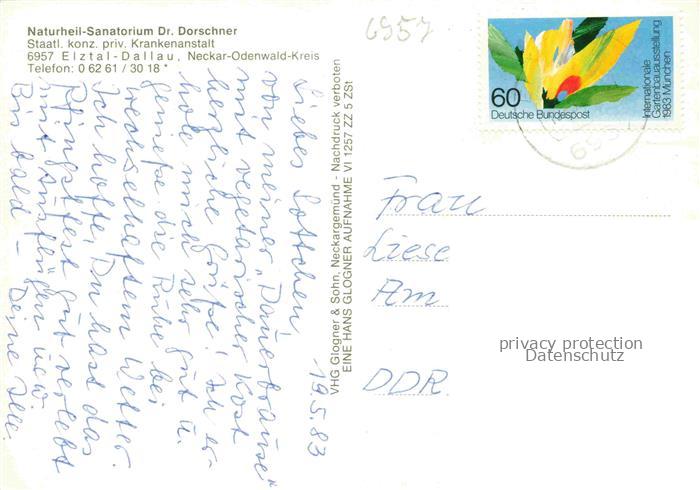 Naturheil-Sanatorium Dr. Dorschner
Staatl. konz. priv. Krankenanstalt
6957 Elztal-Dallau, Neckar-Odenwald-Kreis
Telefon: 0 62 61 / 30 18 *
19.5.83
Liebes Lottchen,
von meiner "Dauerbrause"
mit vegetarischer Kost
herzliche Grüße! Ich er-
hole mich sehr gut u.
genieße die Ruhe bei
wechselhaftem Wetter.
Ich hoffe, Du hast das
Pfingstfest gut verlebt
mit Ausflügen usw.
Bis bald – Deine
VHG Glogner & Sohn, Neckargemünd - Nachdruck verboten
EINE HANS GLOGNER AUFNAHME VI 1257 ZZ 5 ZSt
6957
60
Deutsche Bundespost
Internationale
Gartenbauausstellung
1983 München
6957
Frau
Liese
Am
DDR
privacy protection
Datenschutz